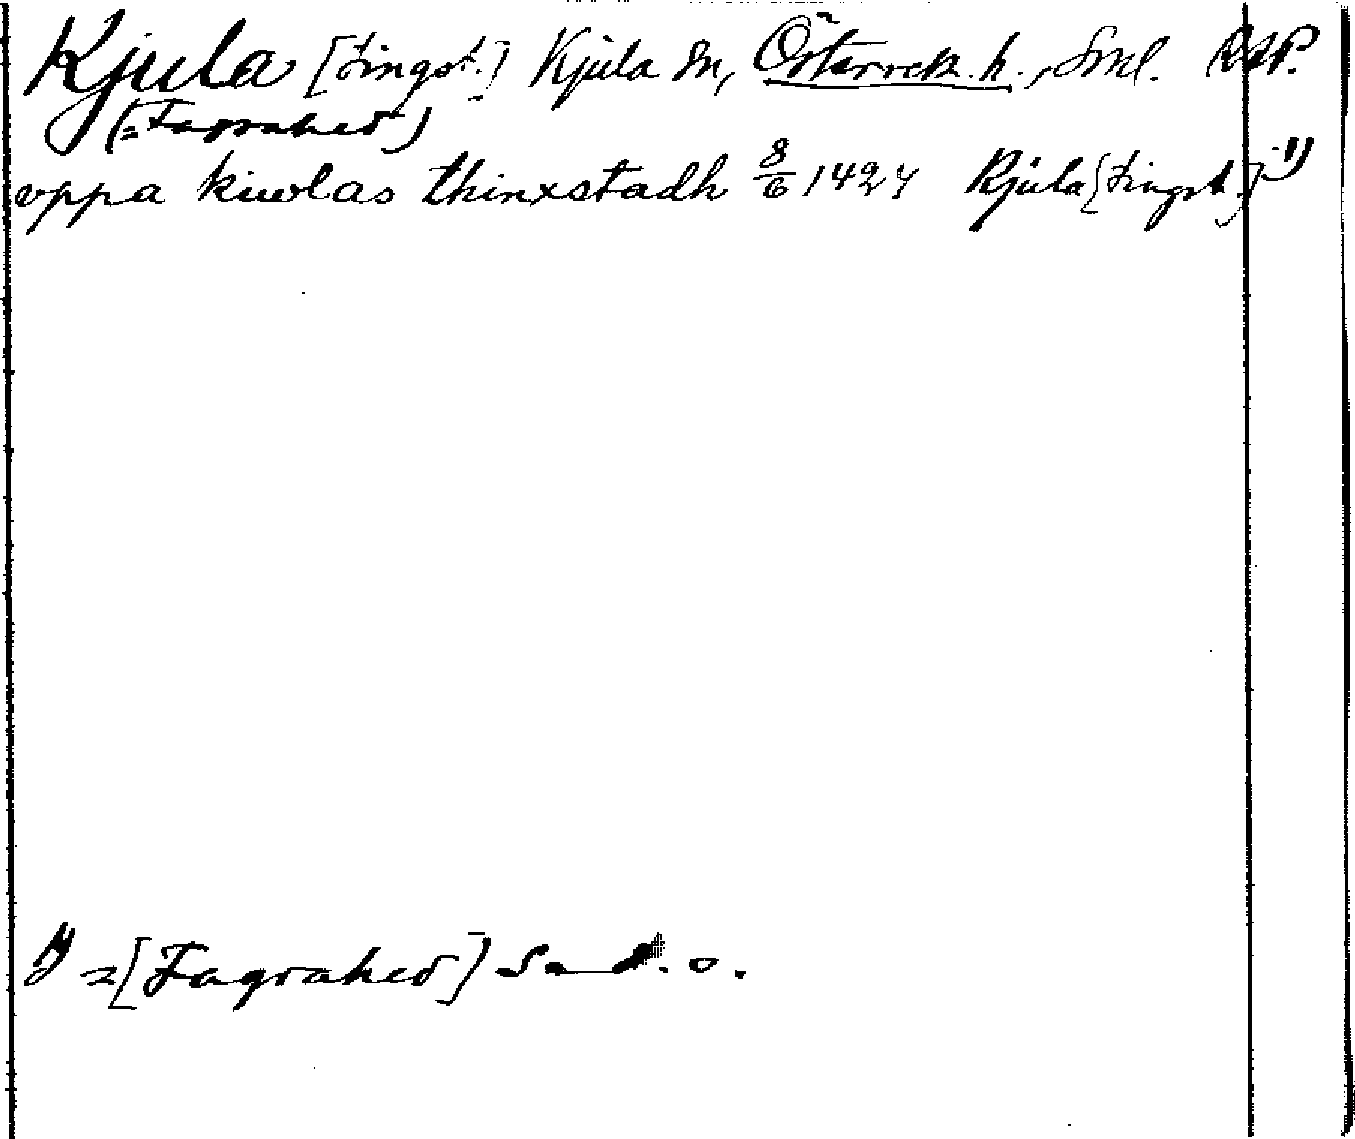 Kjula [tingst.] Kjula sn, Österrek. h., Sml. RAP.
(= Fagrahed)
oppa kiwlas thinxstadh 8/6 1427 Kjula [tingst.] 1)
1) = [Fagrahed] S. o.